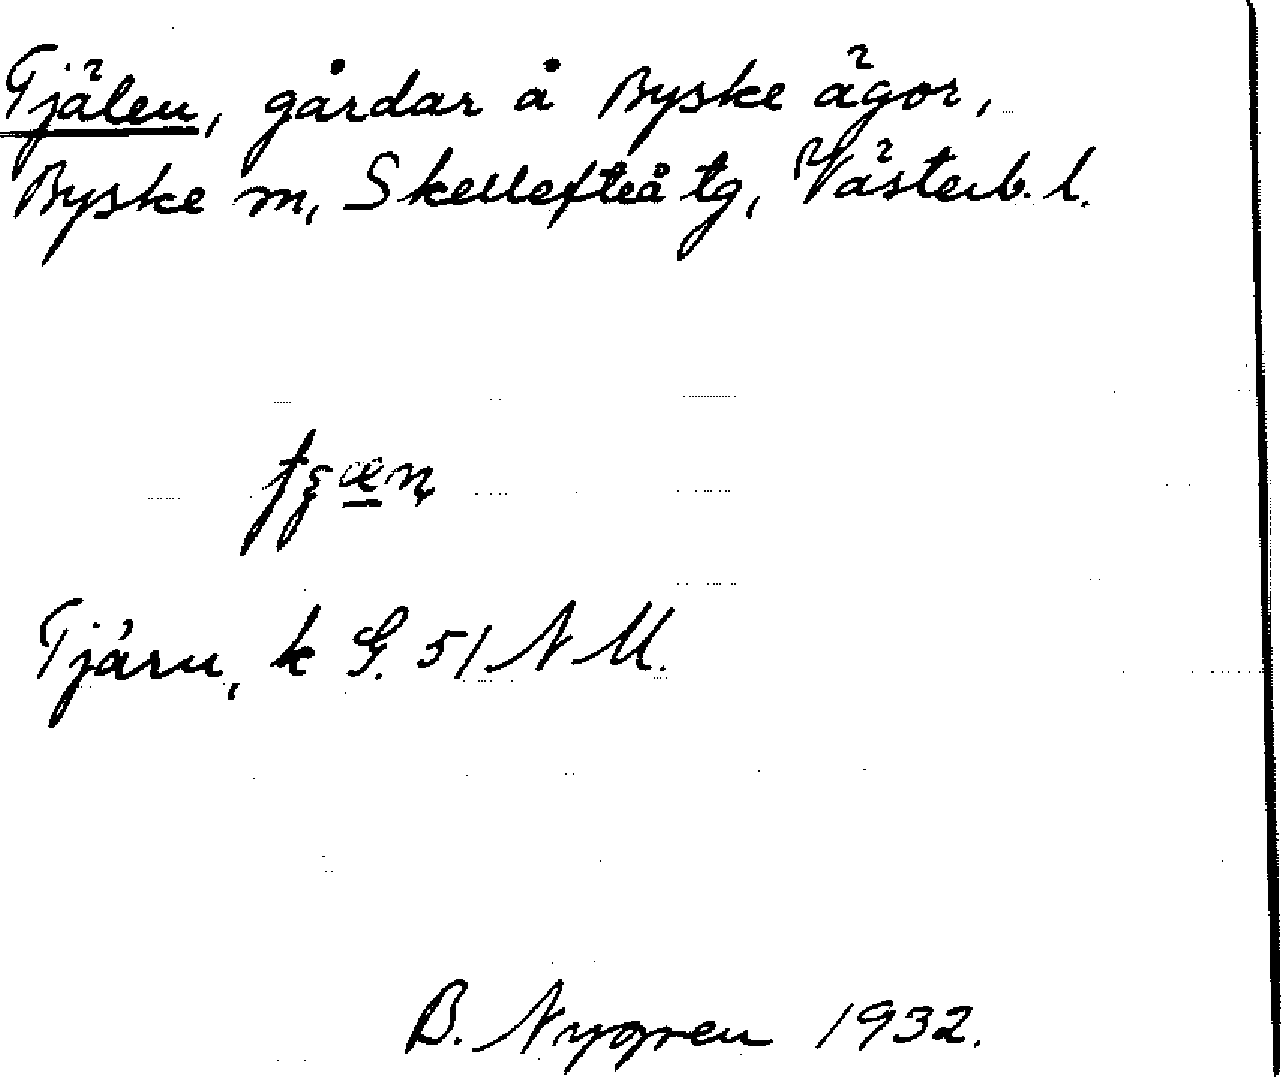 Tjälen, gårdar å Byske ägor,
Byske sn, Skellefteå tg, Västerb. l.
Tjärn, k G. 51 N M.
B. Nygren 1932.